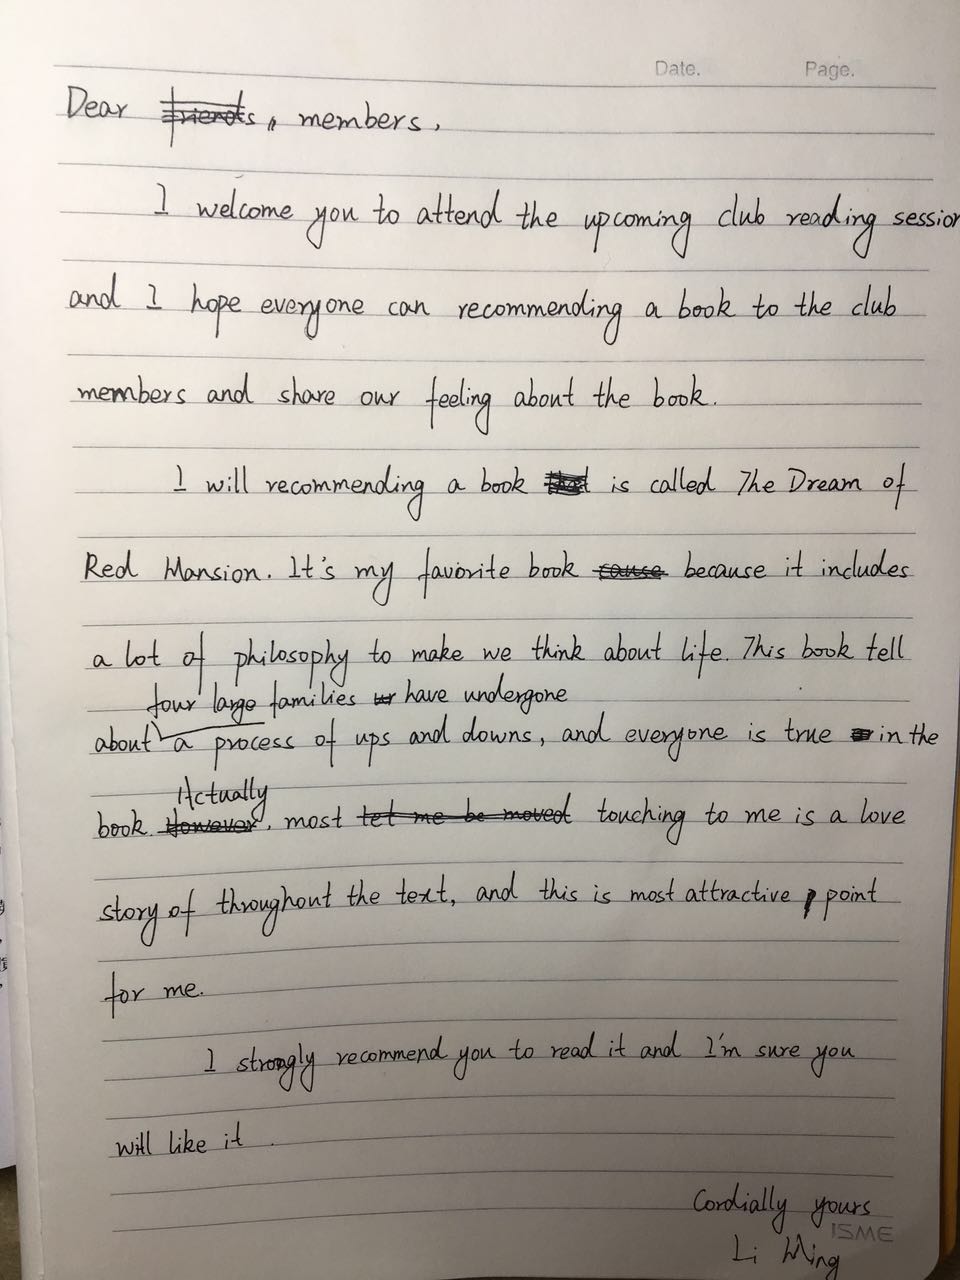 Date. Page.
Dear friends, members,
I welcome you to attend the upcoming club reading session
and I hope everyone can recommending a book to the club
members and share our feeling about the book.
I will recommending a book that is called The Dream of
Red Mansion. It's my favorite book cause because it includes
a lot of philosophy to make we think about life. This book tell
four large families have undergone
about a process of ups and downs, and everyone is true in the
Actually
book. However, most let me be moved touching to me is a love
story of throughout the text, and this is most attractive point
for me.
I strongly recommend you to read it and I'm sure you
will like it.
Cordially yours
ISME
Li Ming